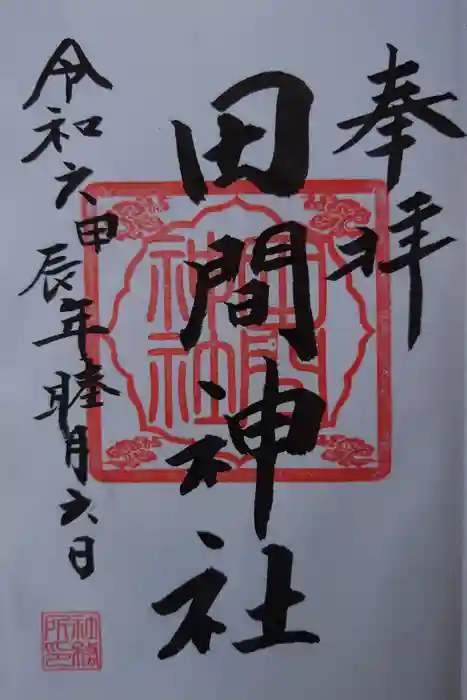 奉拝
田間神社
令和六甲辰年睦月六日
田間
神社
社務
所印